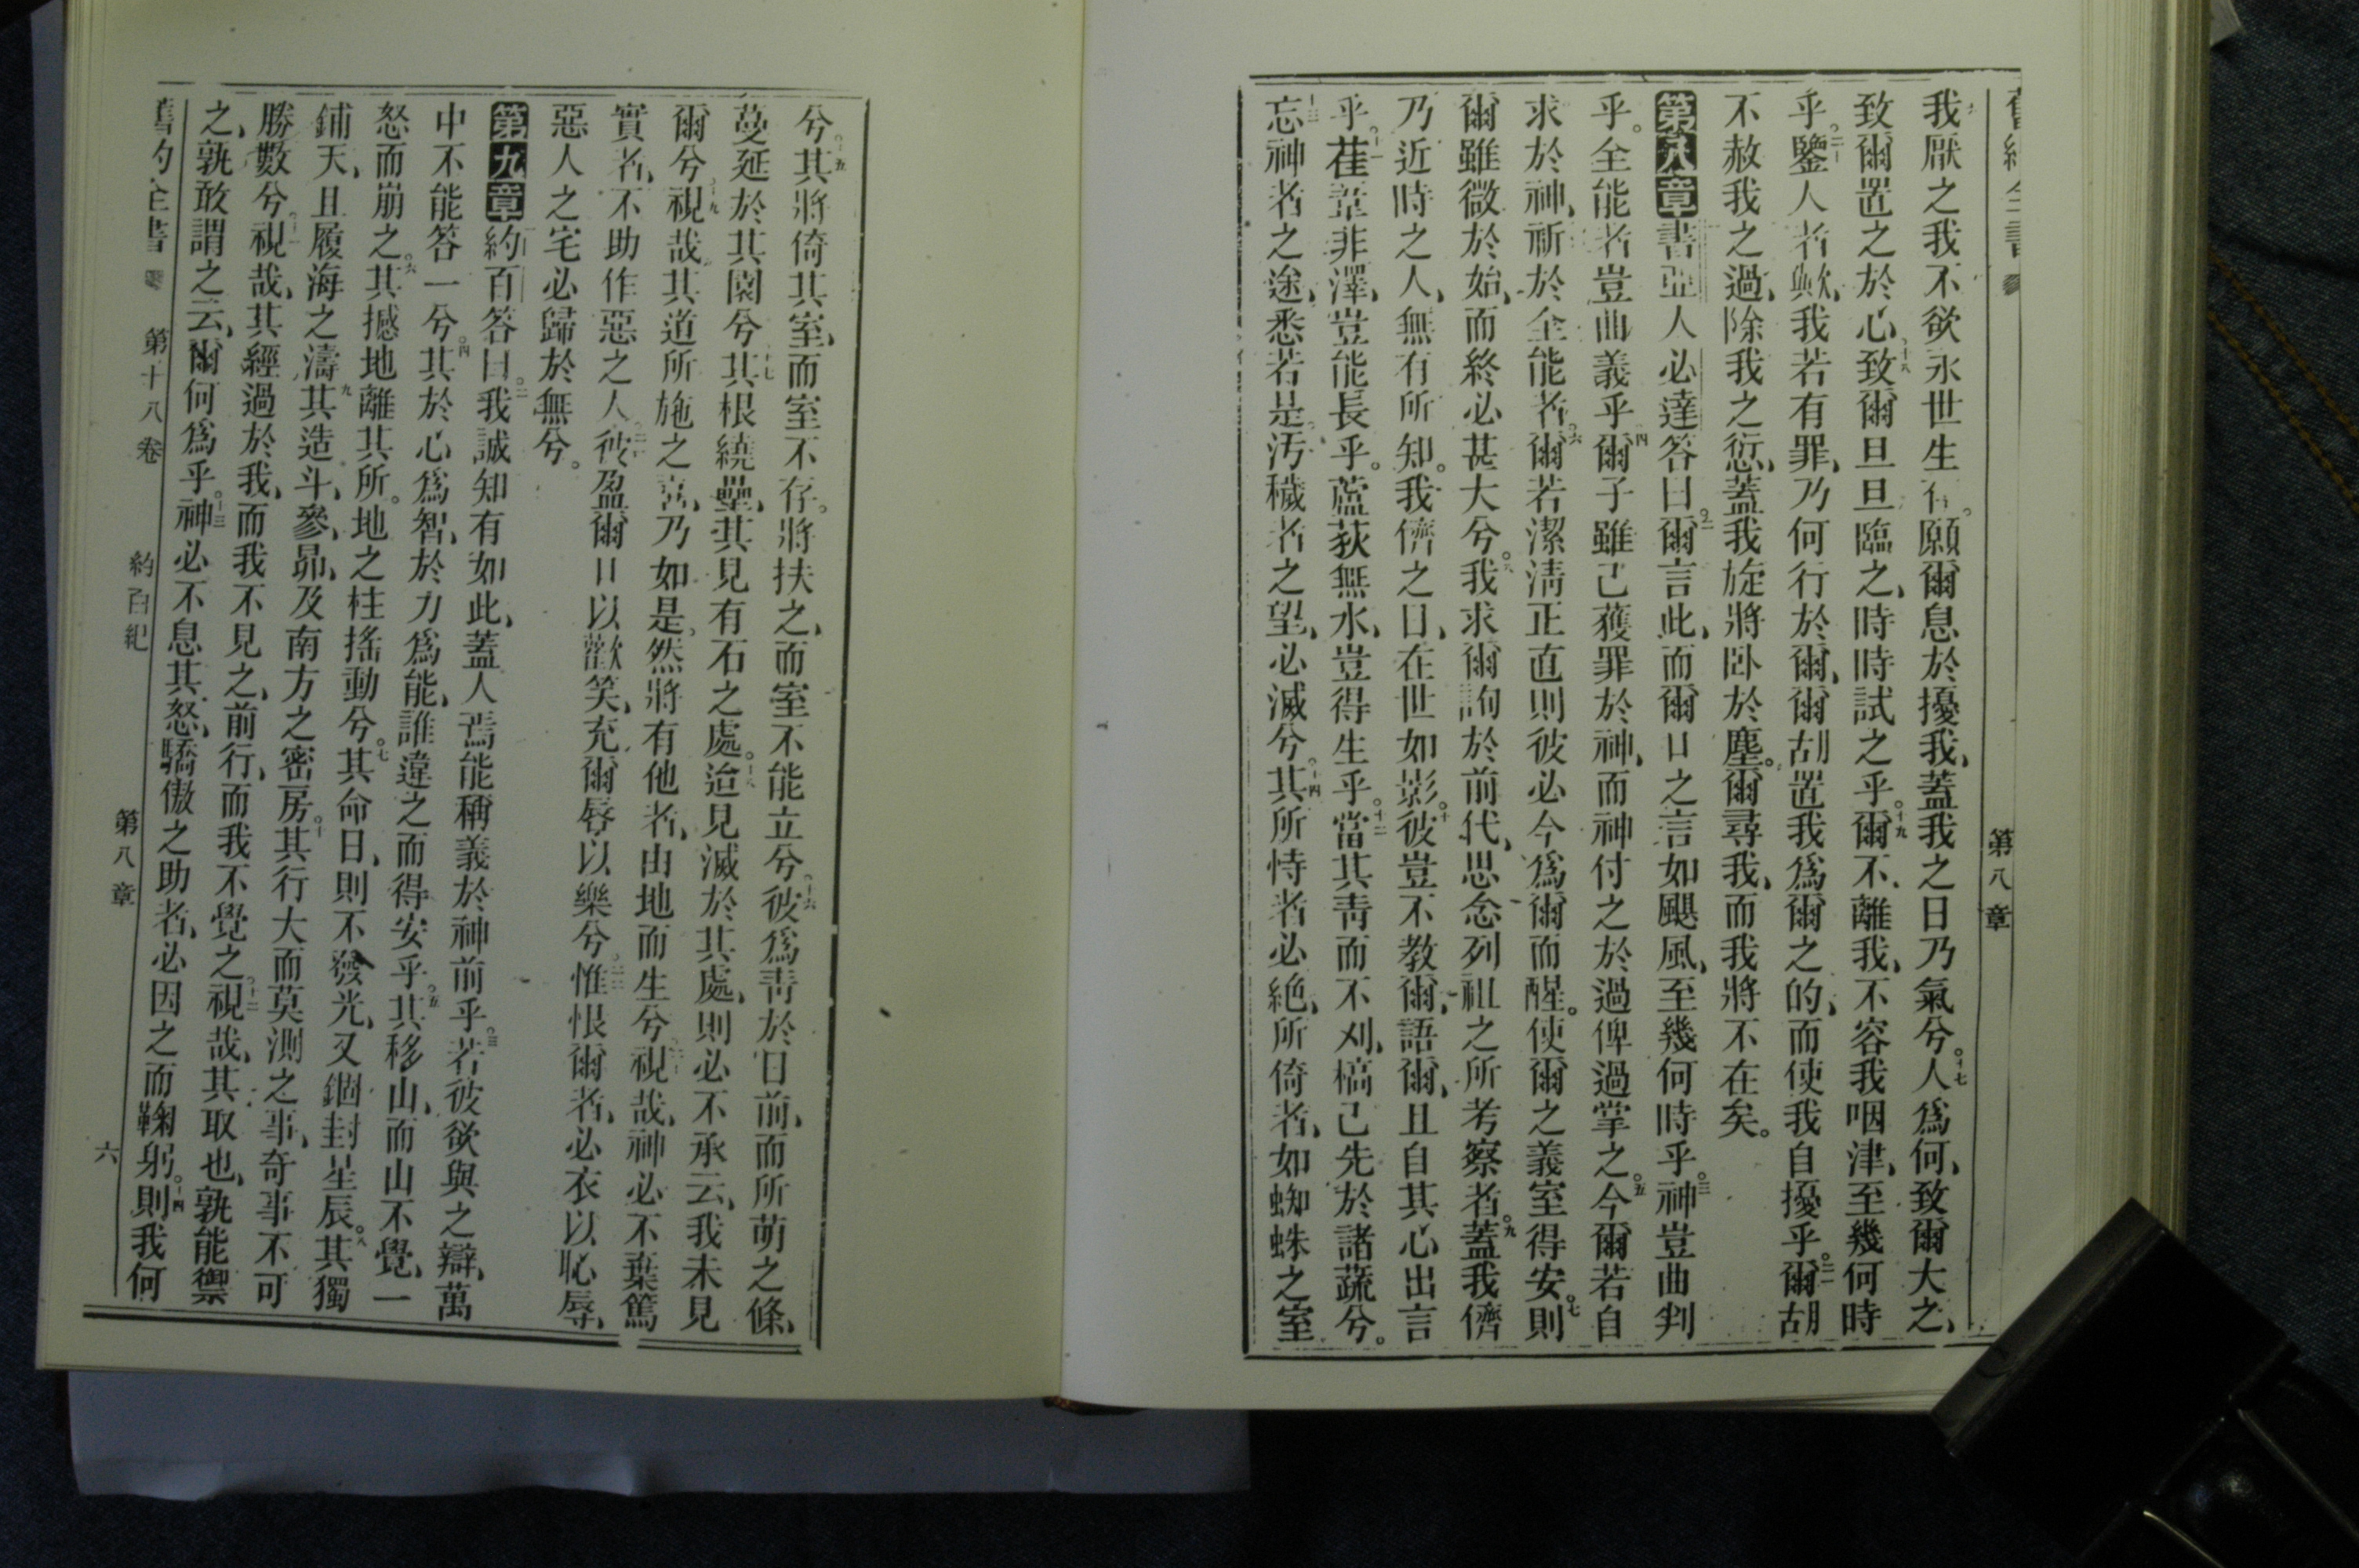 舊約全書
第八章
我厭之我不欲永世生存。願爾息於擾我、蓋我之日乃氣兮。十七人爲何、致爾大之、
致爾置之於心、十八致爾旦旦臨之、時時試之乎。十九爾不離我、不容我咽津、至幾何時
乎。二十鑒人者歟、我若有罪、乃何行於爾、爾胡置我爲爾之的、而使我自擾乎。二一爾胡
不赦我之過、除我之愆、蓋我旋將卧於塵。爾尋我、而我將不在矣。
第八章書亞人必達答曰。二爾言此、而爾口之言如颶風、至幾何時乎。三神豈曲判
乎。全能者豈曲義乎四爾子雖已獲罪於神、而神付之於過俾過掌之。五今爾若自
求於神、祈於全能者。六爾若潔淸正直則彼必今爲爾而醒。使爾之義室得安。七則
爾雖微於始、而終必甚大兮。八我求爾詢於前代、思念列祖之所考察者。九蓋我儕
乃近時之人、無有所知。我儕之日、在世如影。十彼豈不教爾、語爾、且自其心出言
乎。十一萑葦非澤、豈能長乎。蘆荻無水、豈得生乎。十二當其靑而不刈、槁已先於諸蔬兮。
十三忘神者之途、悉若是。汚穢者之望、必滅兮。十四其所恃者必絶、所倚者、如蜘蛛之室
兮。十五其將倚其室、而室不存。將扶之、而室不能立兮。十六彼爲靑於日前、而所萌之條、
蔓延於其園兮。十七其根繞壘、其見有石之處。十八迨見滅於其處、則必不承云、我未見
爾兮。十九視哉、其道所施之喜、乃如是。然將有他者、由地而生兮。二十視哉、神必不棄篤
實者、不助作惡之人。二一彼盈爾口以歡笑、充爾唇以樂兮。二二惟恨爾者、必衣以恥辱、
惡人之宅必歸於無兮。
第九章約百答曰。二我誠知有如此、蓋人焉能稱義於神前乎。三若彼欲與之辯、萬
中不能答一兮。四其於心爲智、於力爲能、誰違之而得安乎。五其移山、而山不覺、一
怒而崩之。六其撼地離其所。地之柱搖動兮。七其命日、則不發光、又錮封星辰。八其獨
鋪天、且履海之濤。九其造斗、參、昴、及南方之密房。十其行大而莫測之事、奇事不可
勝數兮。十一視哉、其經過於我、而我不見之、前行、而我不覺之。十二視哉、其取也、孰能禦
之、孰敢謂之云、爾何爲乎。十三神必不息其怒、驕傲之助者、必因之而鞠躬。十四則我何
舊約全書 第十八卷 約百紀 第八章 六